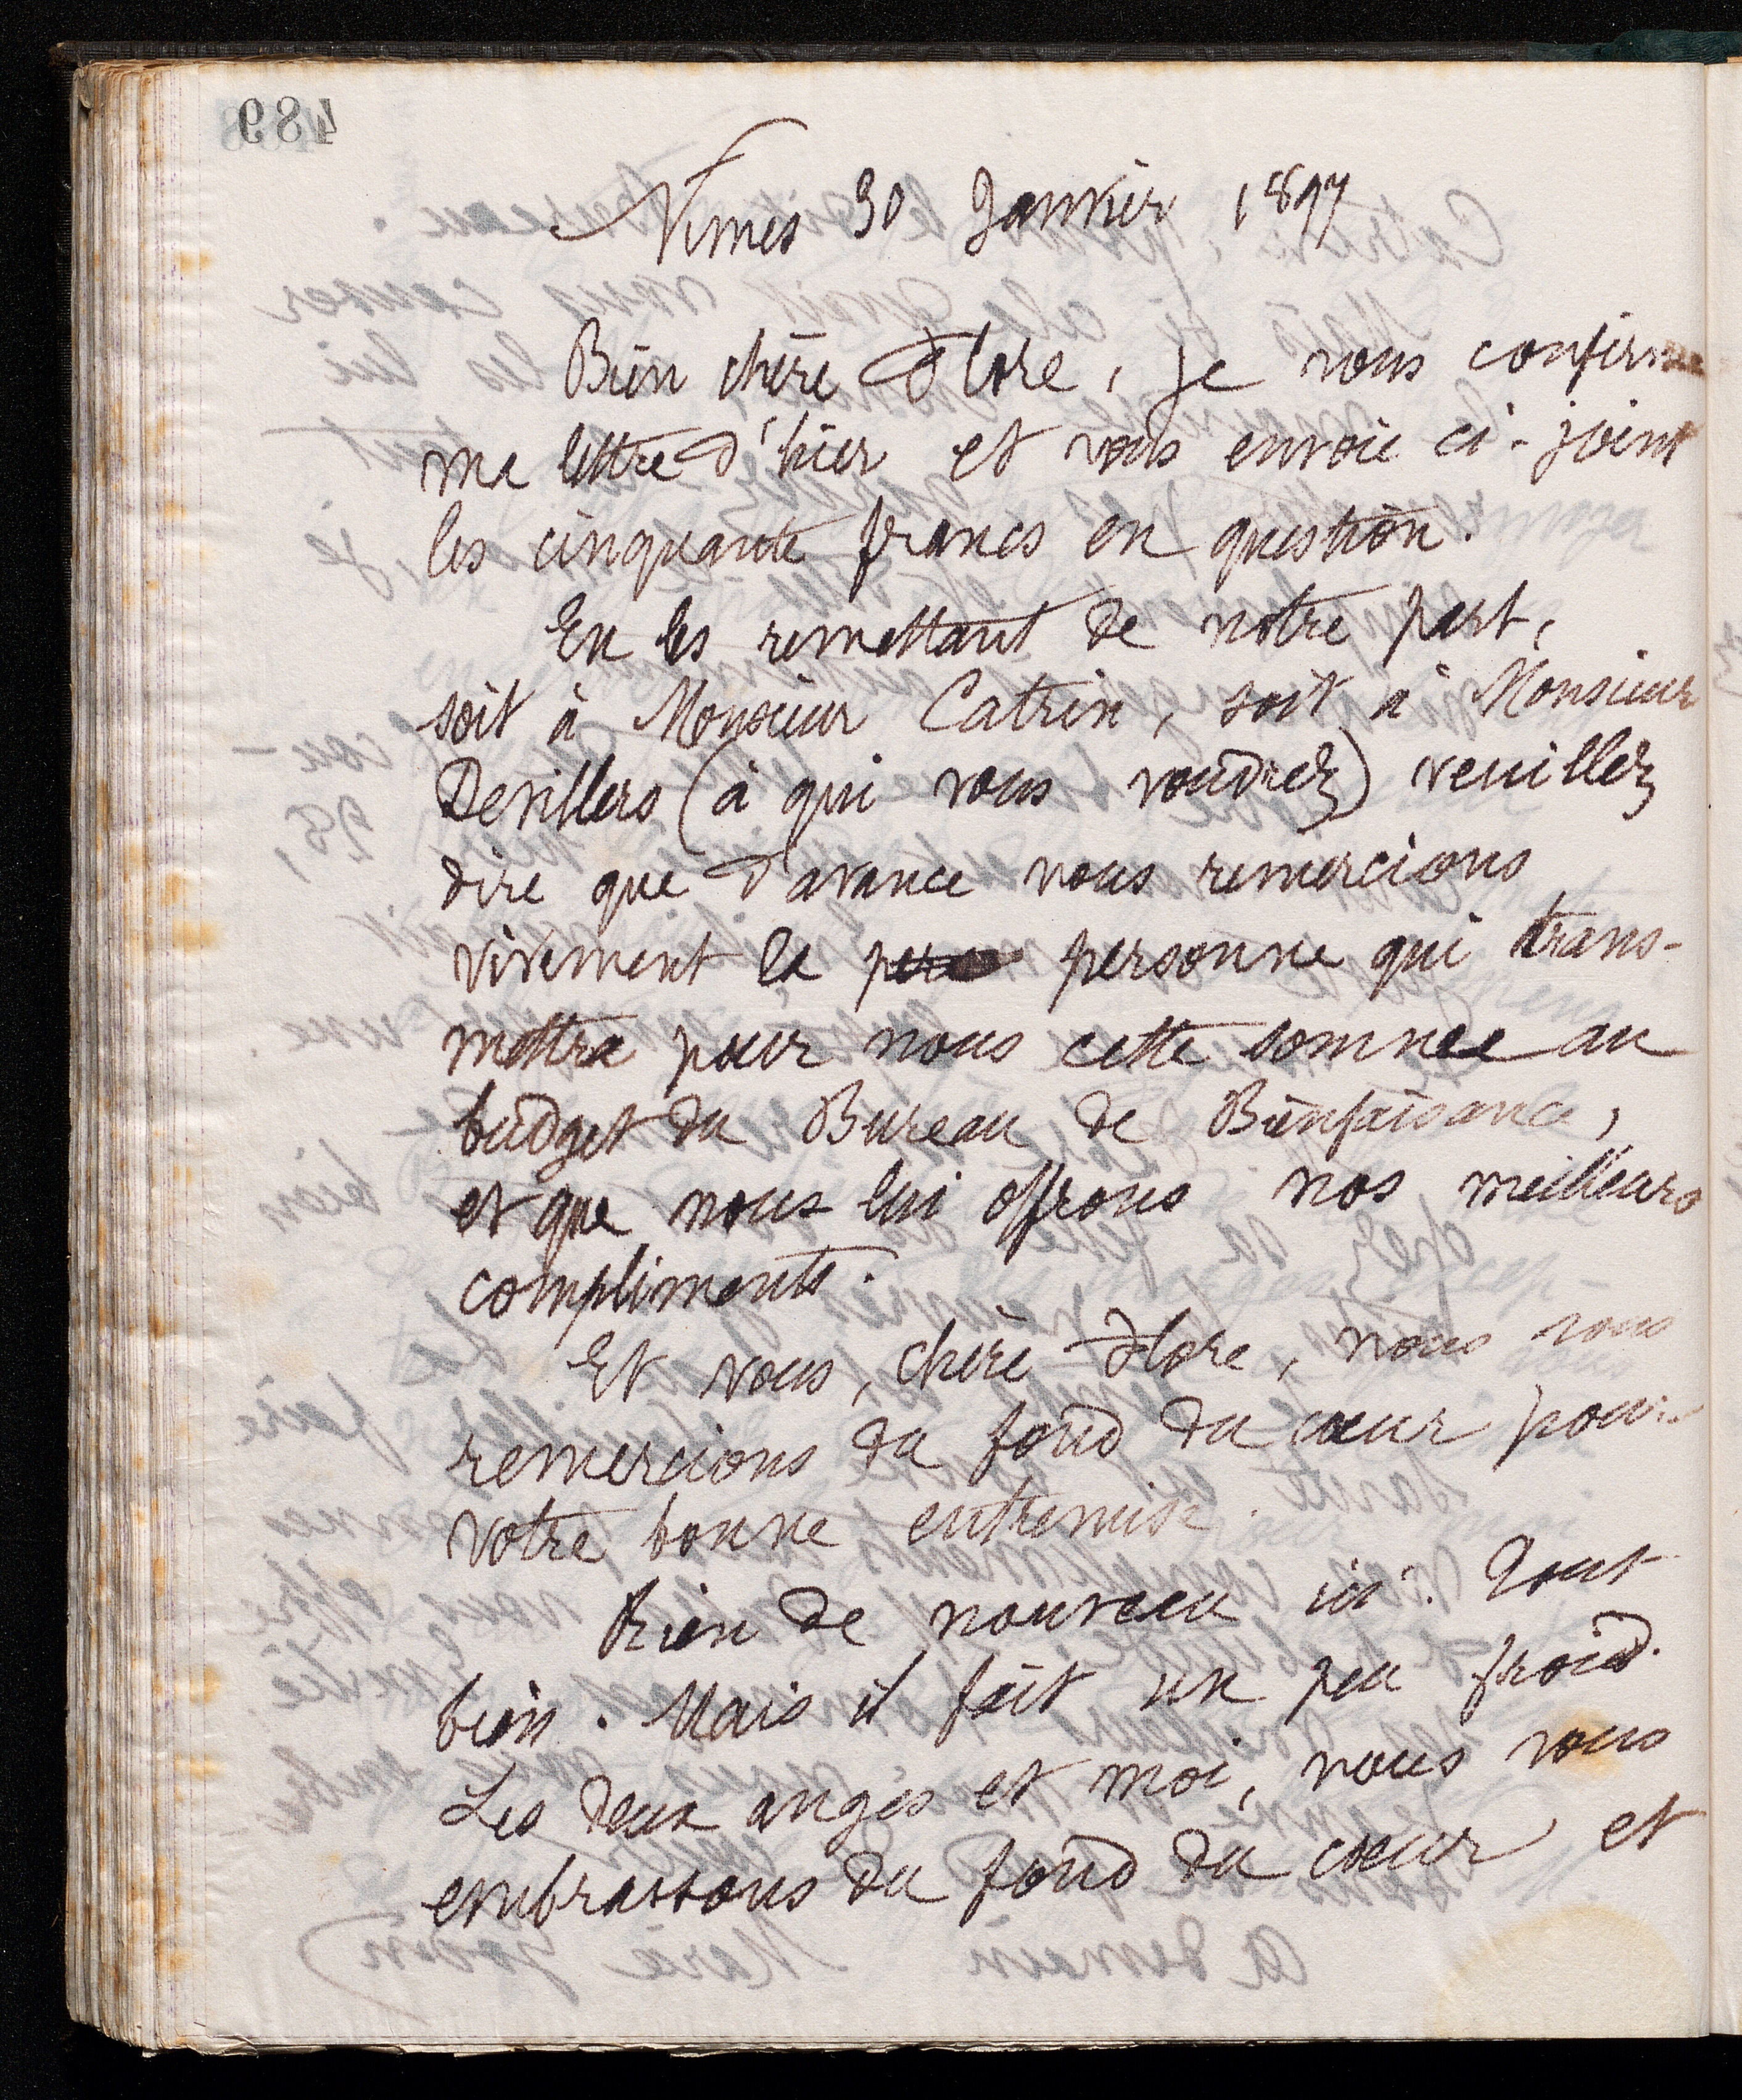 489
Nîmes 30 Janvier 1897
Bien chère Flore, je vous confirme
ma lettre d'hier et vous envoie ci-joint
les cinquante francs en question.
En les remettant de notre part,
soit à Monsieur Catrin, soit à Monsieur
Devillers (à qui vous voudrez) veuillez
dire que d'avance nous remercions
vivement la personne qui trans-
mettra pour nous cette somme au
budget du Bureau de Bienfaisance,
et que nous lui offrons nos meilleurs
compliments.
Et vous, chère Flore, nous vous
remercions du fond du cœur pour
votre bonne entremise.
Rien de nouveau ici. Tout
bien. Mais il fait un peu froid.
Les deux anges et moi, nous vous
embrassons du fond du cœur et